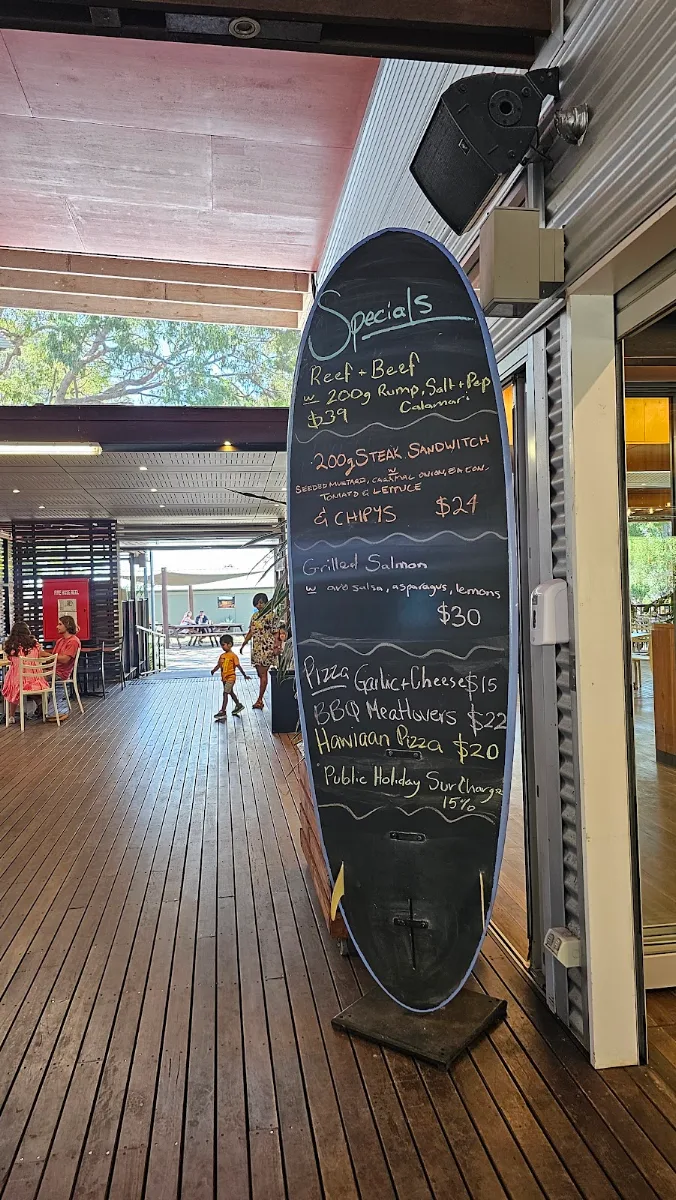 Specials
Reef + Beef
w 200g Rump, Salt + Pep
$39 Calamari
200g STEAK SANDWITCH
w
SEEDED MUSTARD, ONION, BACON,
TOMATO & LETTUCE
& CHIPYS $24
Grilled Salmon
w avo salsa, asparagus, lemons
$30
Pizza Garlic + Cheese $15
BBQ Meatlovers $22
Hawiaan Pizza $20
Public Holiday SurCharge
15%
FIRE HOSE REEL